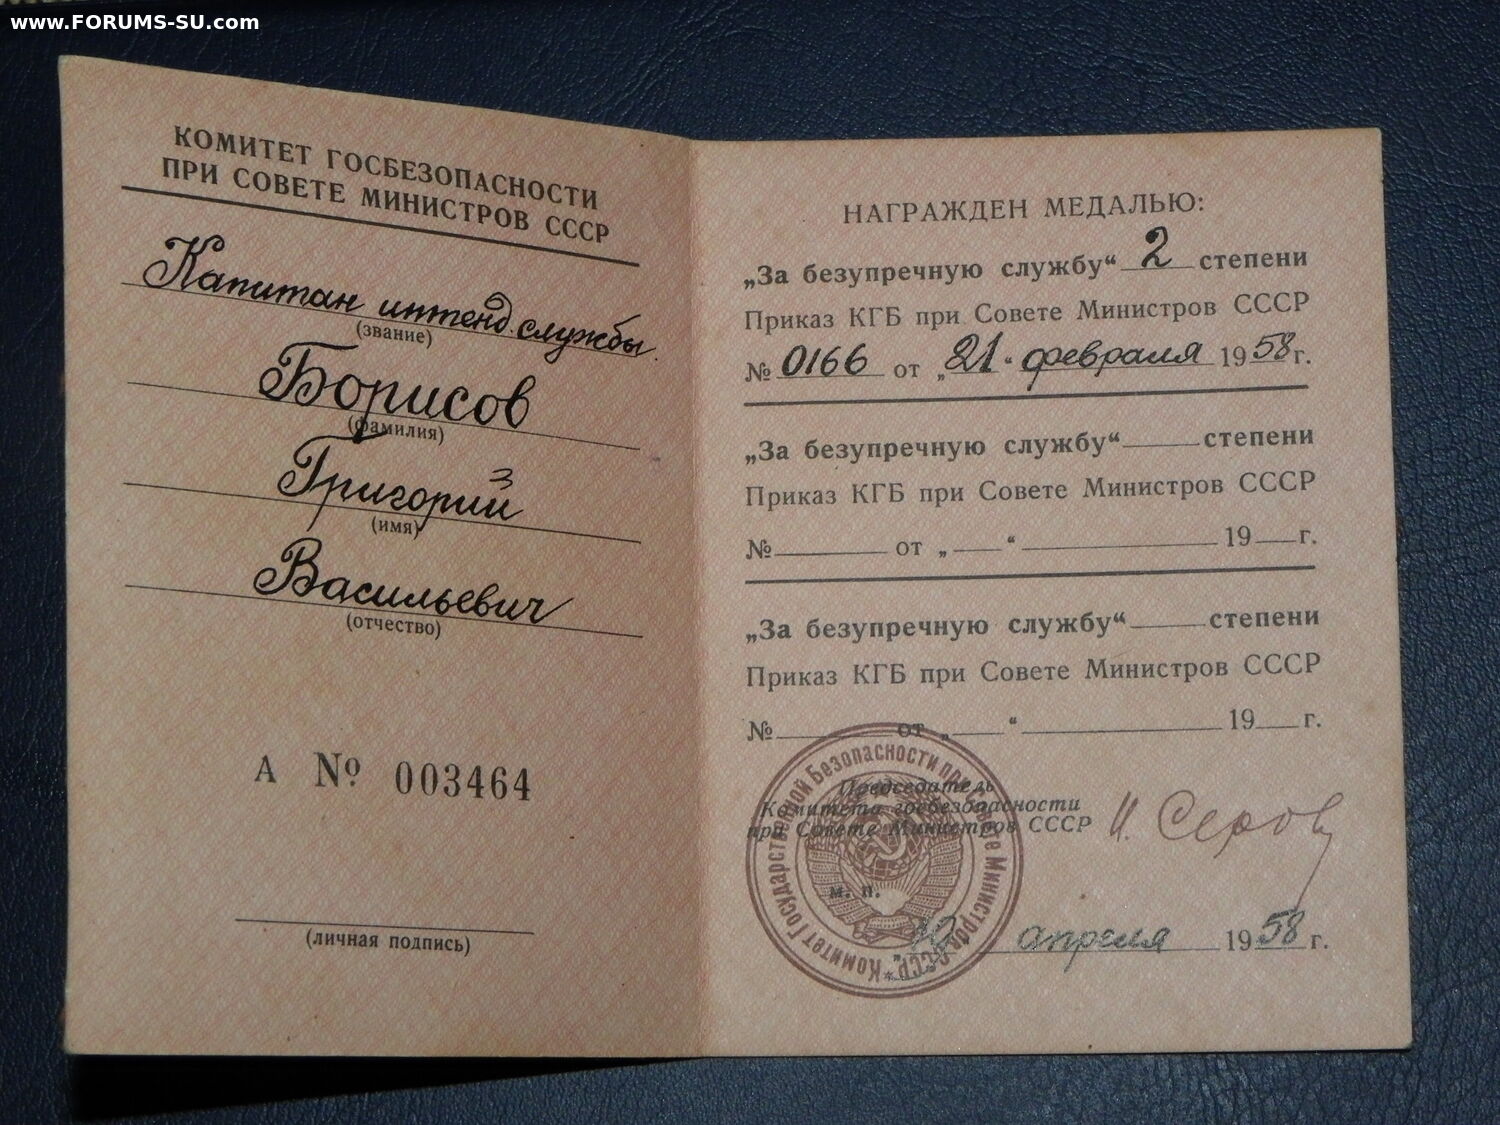 www.FORUMS-SU.com
КОМИТЕТ ГОСБЕЗОПАСНОСТИ
ПРИ СОВЕТЕ МИНИСТРОВ СССР
Капитан интенд. службы.
(звание)
Борисов
(фамилия)
Григорий
(имя)
Васильевич
(отчество)
А № 003464
(личная подпись)
НАГРАЖДЕН МЕДАЛЬЮ:
„За безупречную службу“ 2 степени
Приказ КГБ при Совете Министров СССР
№ 0166 от „21“ февраля 1958 г.
„За безупречную службу“ степени
Приказ КГБ при Совете Министров СССР
№ от „ “ 19 г.
„За безупречную службу“ степени
Приказ КГБ при Совете Министров СССР
№ от „ “ 19 г.
Председатель
Комитета госбезопасности
при Совете Министров СССР И. Серов
м. п.
апреля 1958 г.
Комитет Государственной Безопасности при Совете Министров СССР